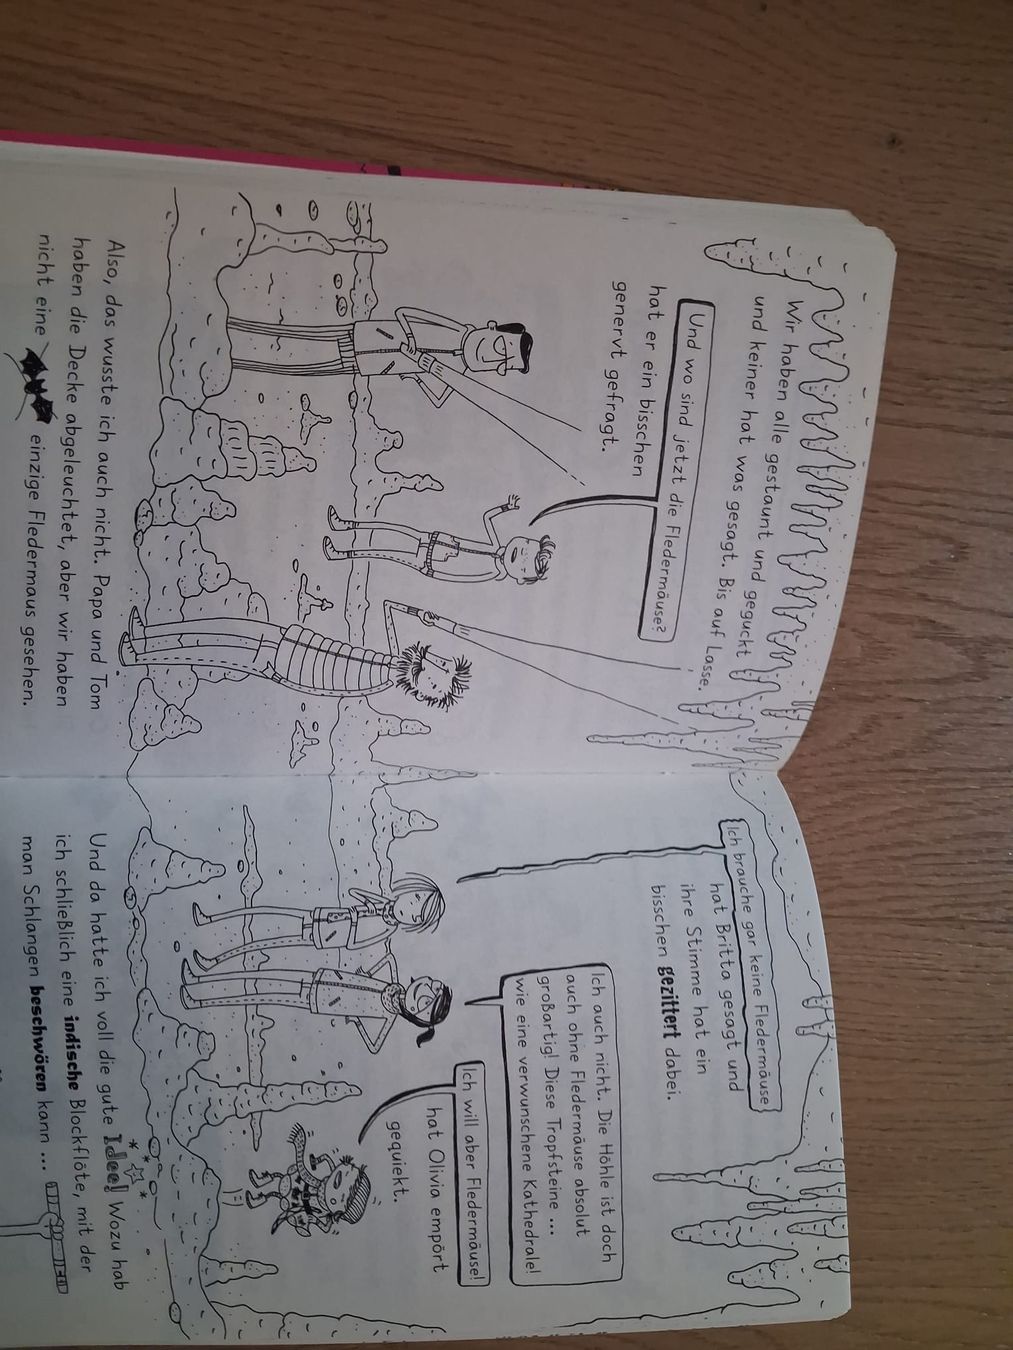 Wir haben alle gestaunt und geguckt
und keiner hat was gesagt. Bis auf Lasse.
Und wo sind jetzt die Fledermäuse?
hat er ein bisschen
genervt gefragt.
Also, das wusste ich auch nicht. Papa und Tom
haben die Decke abgeleuchtet, aber wir haben
nicht eine einzige Fledermaus gesehen.
Ich brauche gar keine Fledermäuse
hat Britta gesagt und
ihre Stimme hat ein
bisschen gezittert dabei.
Ich auch nicht. Die Höhle ist doch
auch ohne Fledermäuse absolut
großartig! Diese Tropfsteine ...
wie eine verwunschene Kathedrale!
Ich will aber Fledermäuse!
hat Olivia empört
gequiekt.
Und da hatte ich voll die gute Idee! Wozu hab
ich schließlich eine indische Blockflöte, mit der
man Schlangen beschwören kann ...